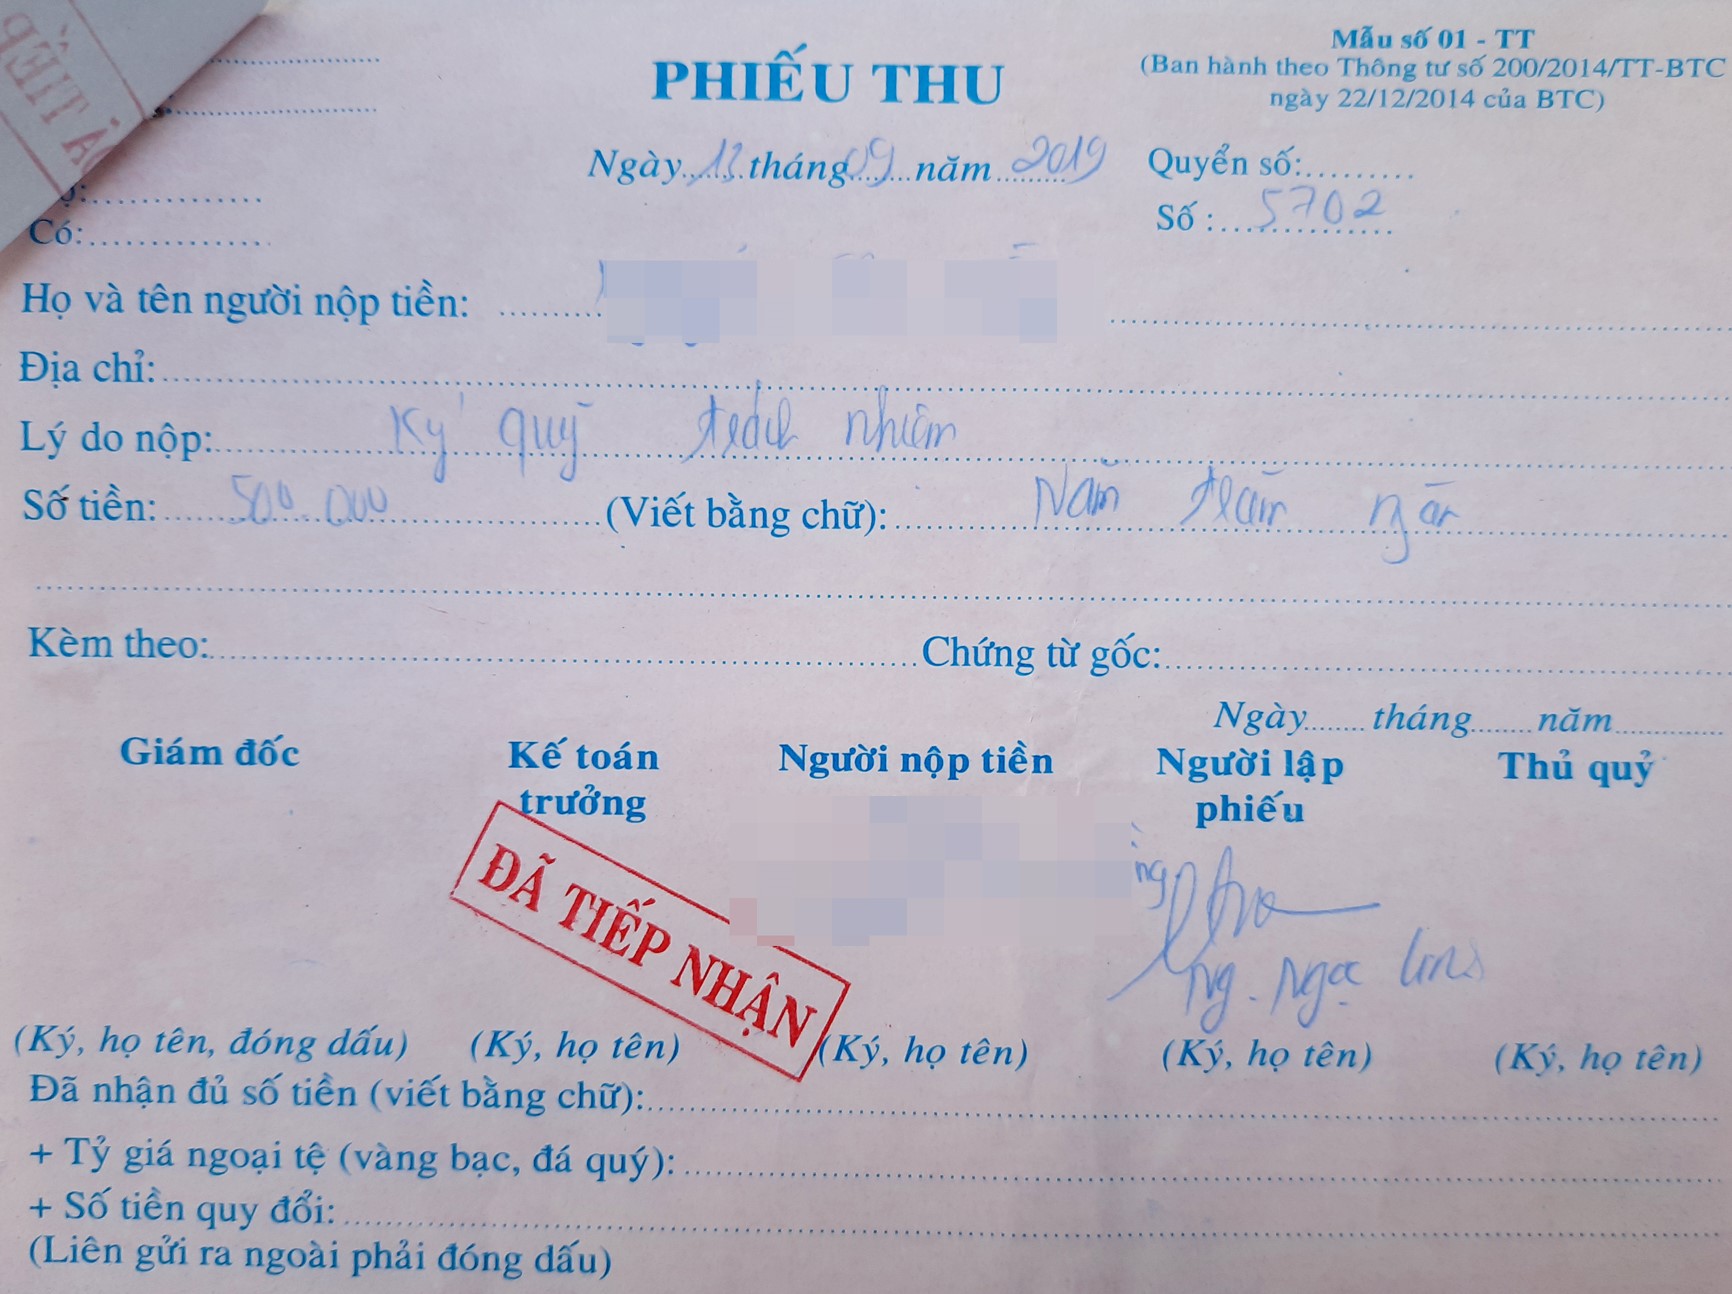 PHIẾU THU
Mẫu số 01 - TT
(Ban hành theo Thông tư số 200/2014/TT-BTC
ngày 22/12/2014 của BTC)
Ngày 13 tháng 09 năm 2019
Quyển số:
Số : 5702
Có:
Họ và tên người nộp tiền:
Địa chỉ:
Lý do nộp: Ký quỹ trách nhiệm
Số tiền: 500.000 (Viết bằng chữ): Năm trăm ngàn
Kèm theo: Chứng từ gốc:
Ngày tháng năm
Giám đốc Kế toán trưởng Người nộp tiền Người lập phiếu Thủ quỷ
ĐÃ TIẾP NHẬN
Ng. Ngọc
(Ký, họ tên, đóng dấu) (Ký, họ tên) (Ký, họ tên) (Ký, họ tên) (Ký, họ tên)
Đã nhận đủ số tiền (viết bằng chữ):
+ Tỷ giá ngoại tệ (vàng bạc, đá quý):
+ Số tiền quy đổi:
(Liên gửi ra ngoài phải đóng dấu)